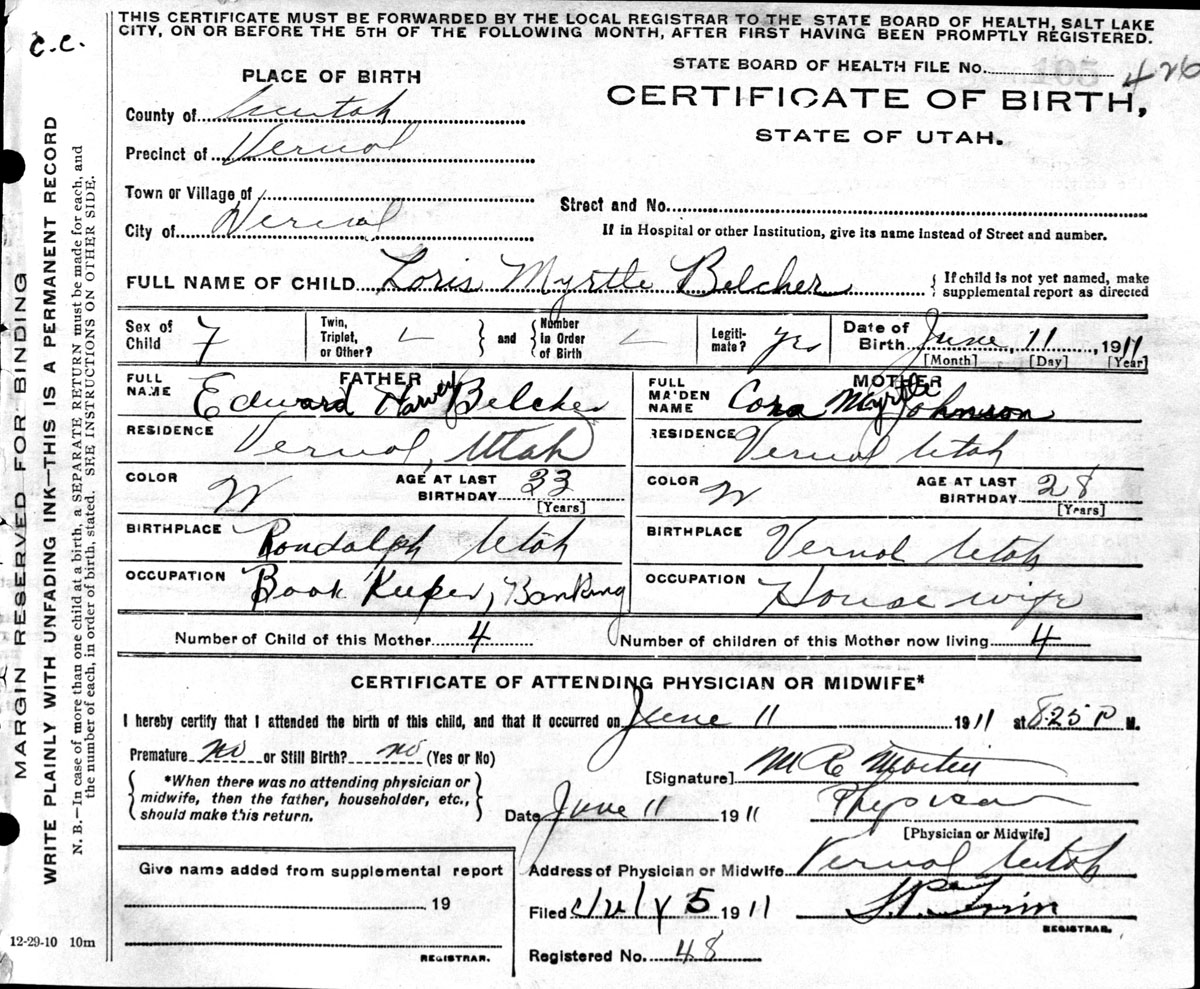 THIS CERTIFICATE MUST BE FORWARDED BY THE LOCAL REGISTRAR TO THE STATE BOARD OF HEALTH, SALT LAKE
CITY, ON OR BEFORE THE 5TH OF THE FOLLOWING MONTH, AFTER FIRST HAVING BEEN PROMPTLY REGISTERED.
C.C.
STATE BOARD OF HEALTH FILE No. 105 426
PLACE OF BIRTH
CERTIFICATE OF BIRTH,
STATE OF UTAH.
County of Uintah
Precinct of Vernal
Town or Village of
Street and No.
City of Vernal
If in Hospital or other Institution, give its name instead of Street and number.
FULL NAME OF CHILD Loris Myrtle Belcher
If child is not yet named, make
supplemental report as directed
Sex of Child F
Twin, Triplet, or Other?
and
Number in Order of Birth
Legitimate? yes
Date of Birth June 11, 1911
[Month] [Day] [Year]
FATHER
FULL NAME Edward Harvey Belcher
MOTHER
FULL MAIDEN NAME Cora Myrtle Johnson
RESIDENCE Vernal, Utah
RESIDENCE Vernal Utah
COLOR W
AGE AT LAST BIRTHDAY 33
[Years]
COLOR W
AGE AT LAST BIRTHDAY 28
[Years]
BIRTHPLACE Randolph Utah
BIRTHPLACE Vernal Utah
OCCUPATION Book Keeper, Banking
OCCUPATION House wife
Number of Child of this Mother 4
Number of children of this Mother now living 4
CERTIFICATE OF ATTENDING PHYSICIAN OR MIDWIFE*
I hereby certify that I attended the birth of this child, and that it occurred on June 11 1911 at 8.25 P M.
Premature no or Still Birth? no (Yes or No)
*When there was no attending physician or
midwife, then the father, householder, etc.,
should make this return.
[Signature] M C
Date June 11 1911
Physician
[Physician or Midwife]
Give name added from supplemental report
19
REGISTRAR.
Address of Physician or Midwife Vernal Utah
Filed July 5 1911
REGISTRAR.
Registered No. 48
12-29-10 10m
MARGIN RESERVED FOR BINDING
WRITE PLAINLY WITH UNFADING INK—THIS IS A PERMANENT RECORD
N. B.—In case of more than one child at a birth, a SEPARATE RETURN must be made for each, and
the number of each, in order of birth, stated. SEE INSTRUCTIONS ON OTHER SIDE.